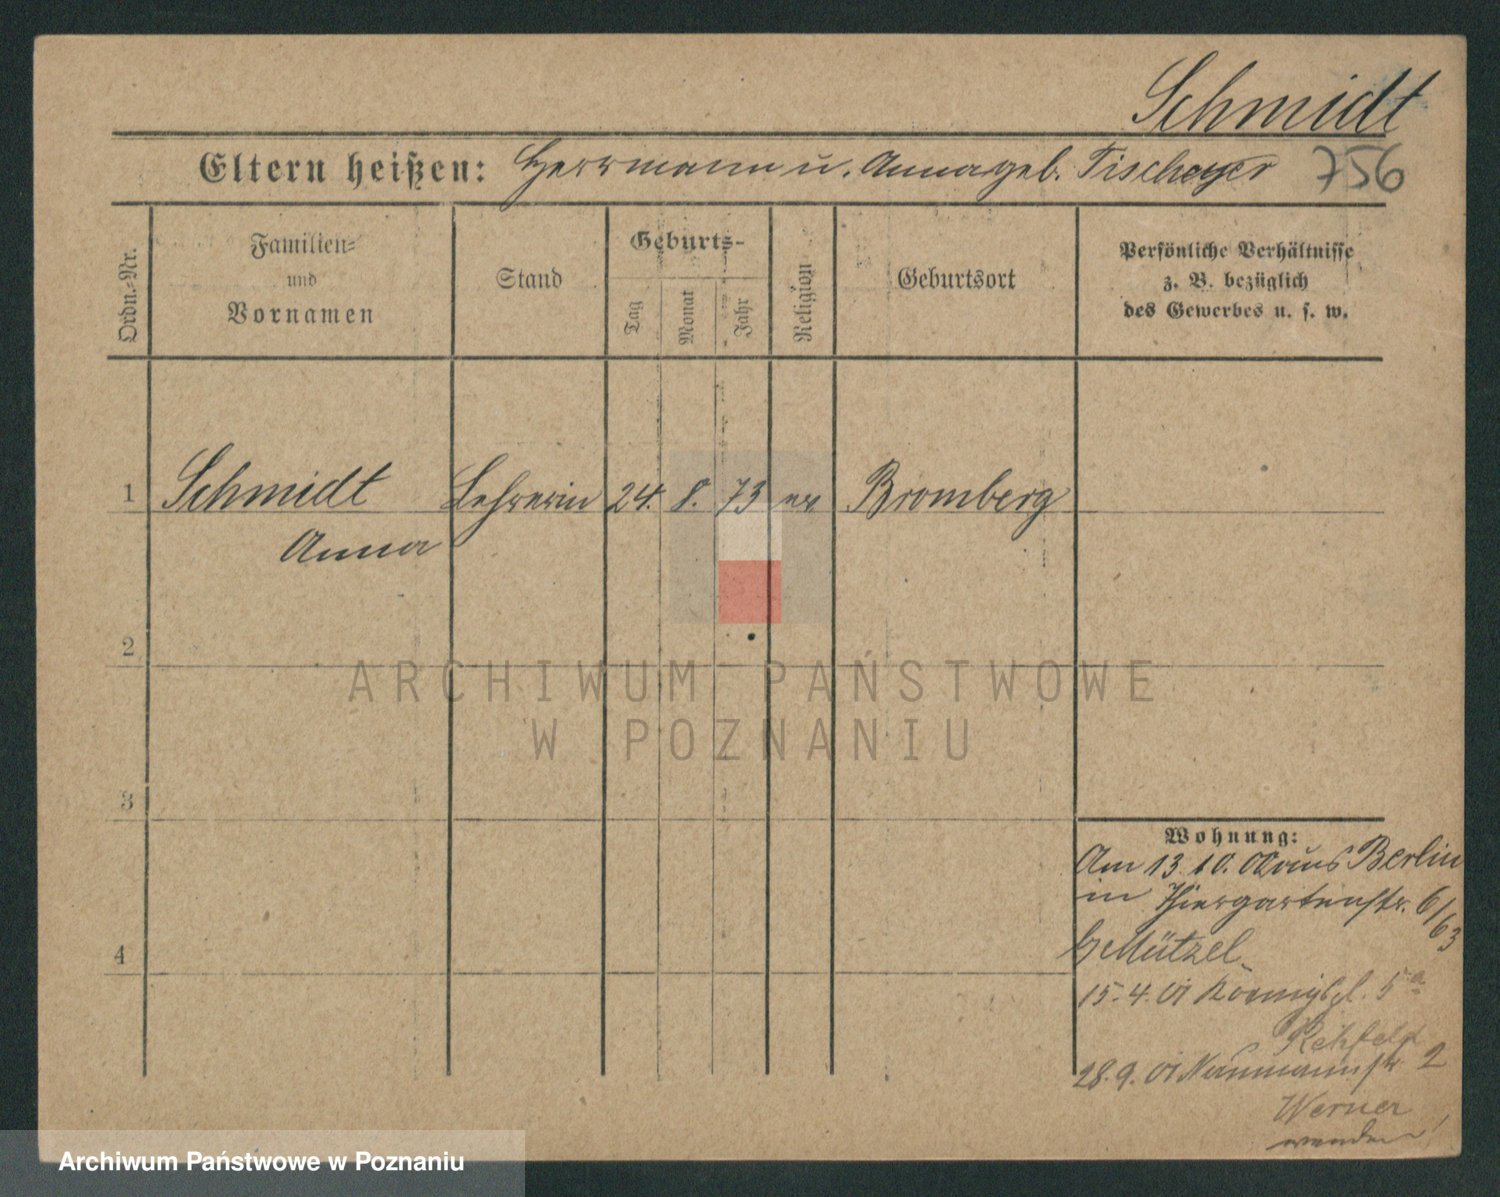 Schmidt
Eltern heißen: Herrmann u. Anna geb. Tischeyer 756
Ordn.-Nr.
Familien-
und
Vornamen
Stand
Geburts-
Tag
Monat
Jahr
Religion
Geburtsort
Persönliche Verhältnisse
z. B. bezüglich
des Gewerbes u. s. w.
1 Schmidt Lehrerin 24. 8. 73 ev Bromberg
Anna
2
3
4
ARCHIWUM PAŃSTWOWE
W POZNANIU
Wohnung:
Am 13.10.00 aus Berlin
in Thiergartenstr. 6/63
b Mützel
15.4.01 Koenigspl. 5a
Rehfeld
28.9.01 Naumannstr 2
Werner
wenden!
Archiwum Państwowe w Poznaniu